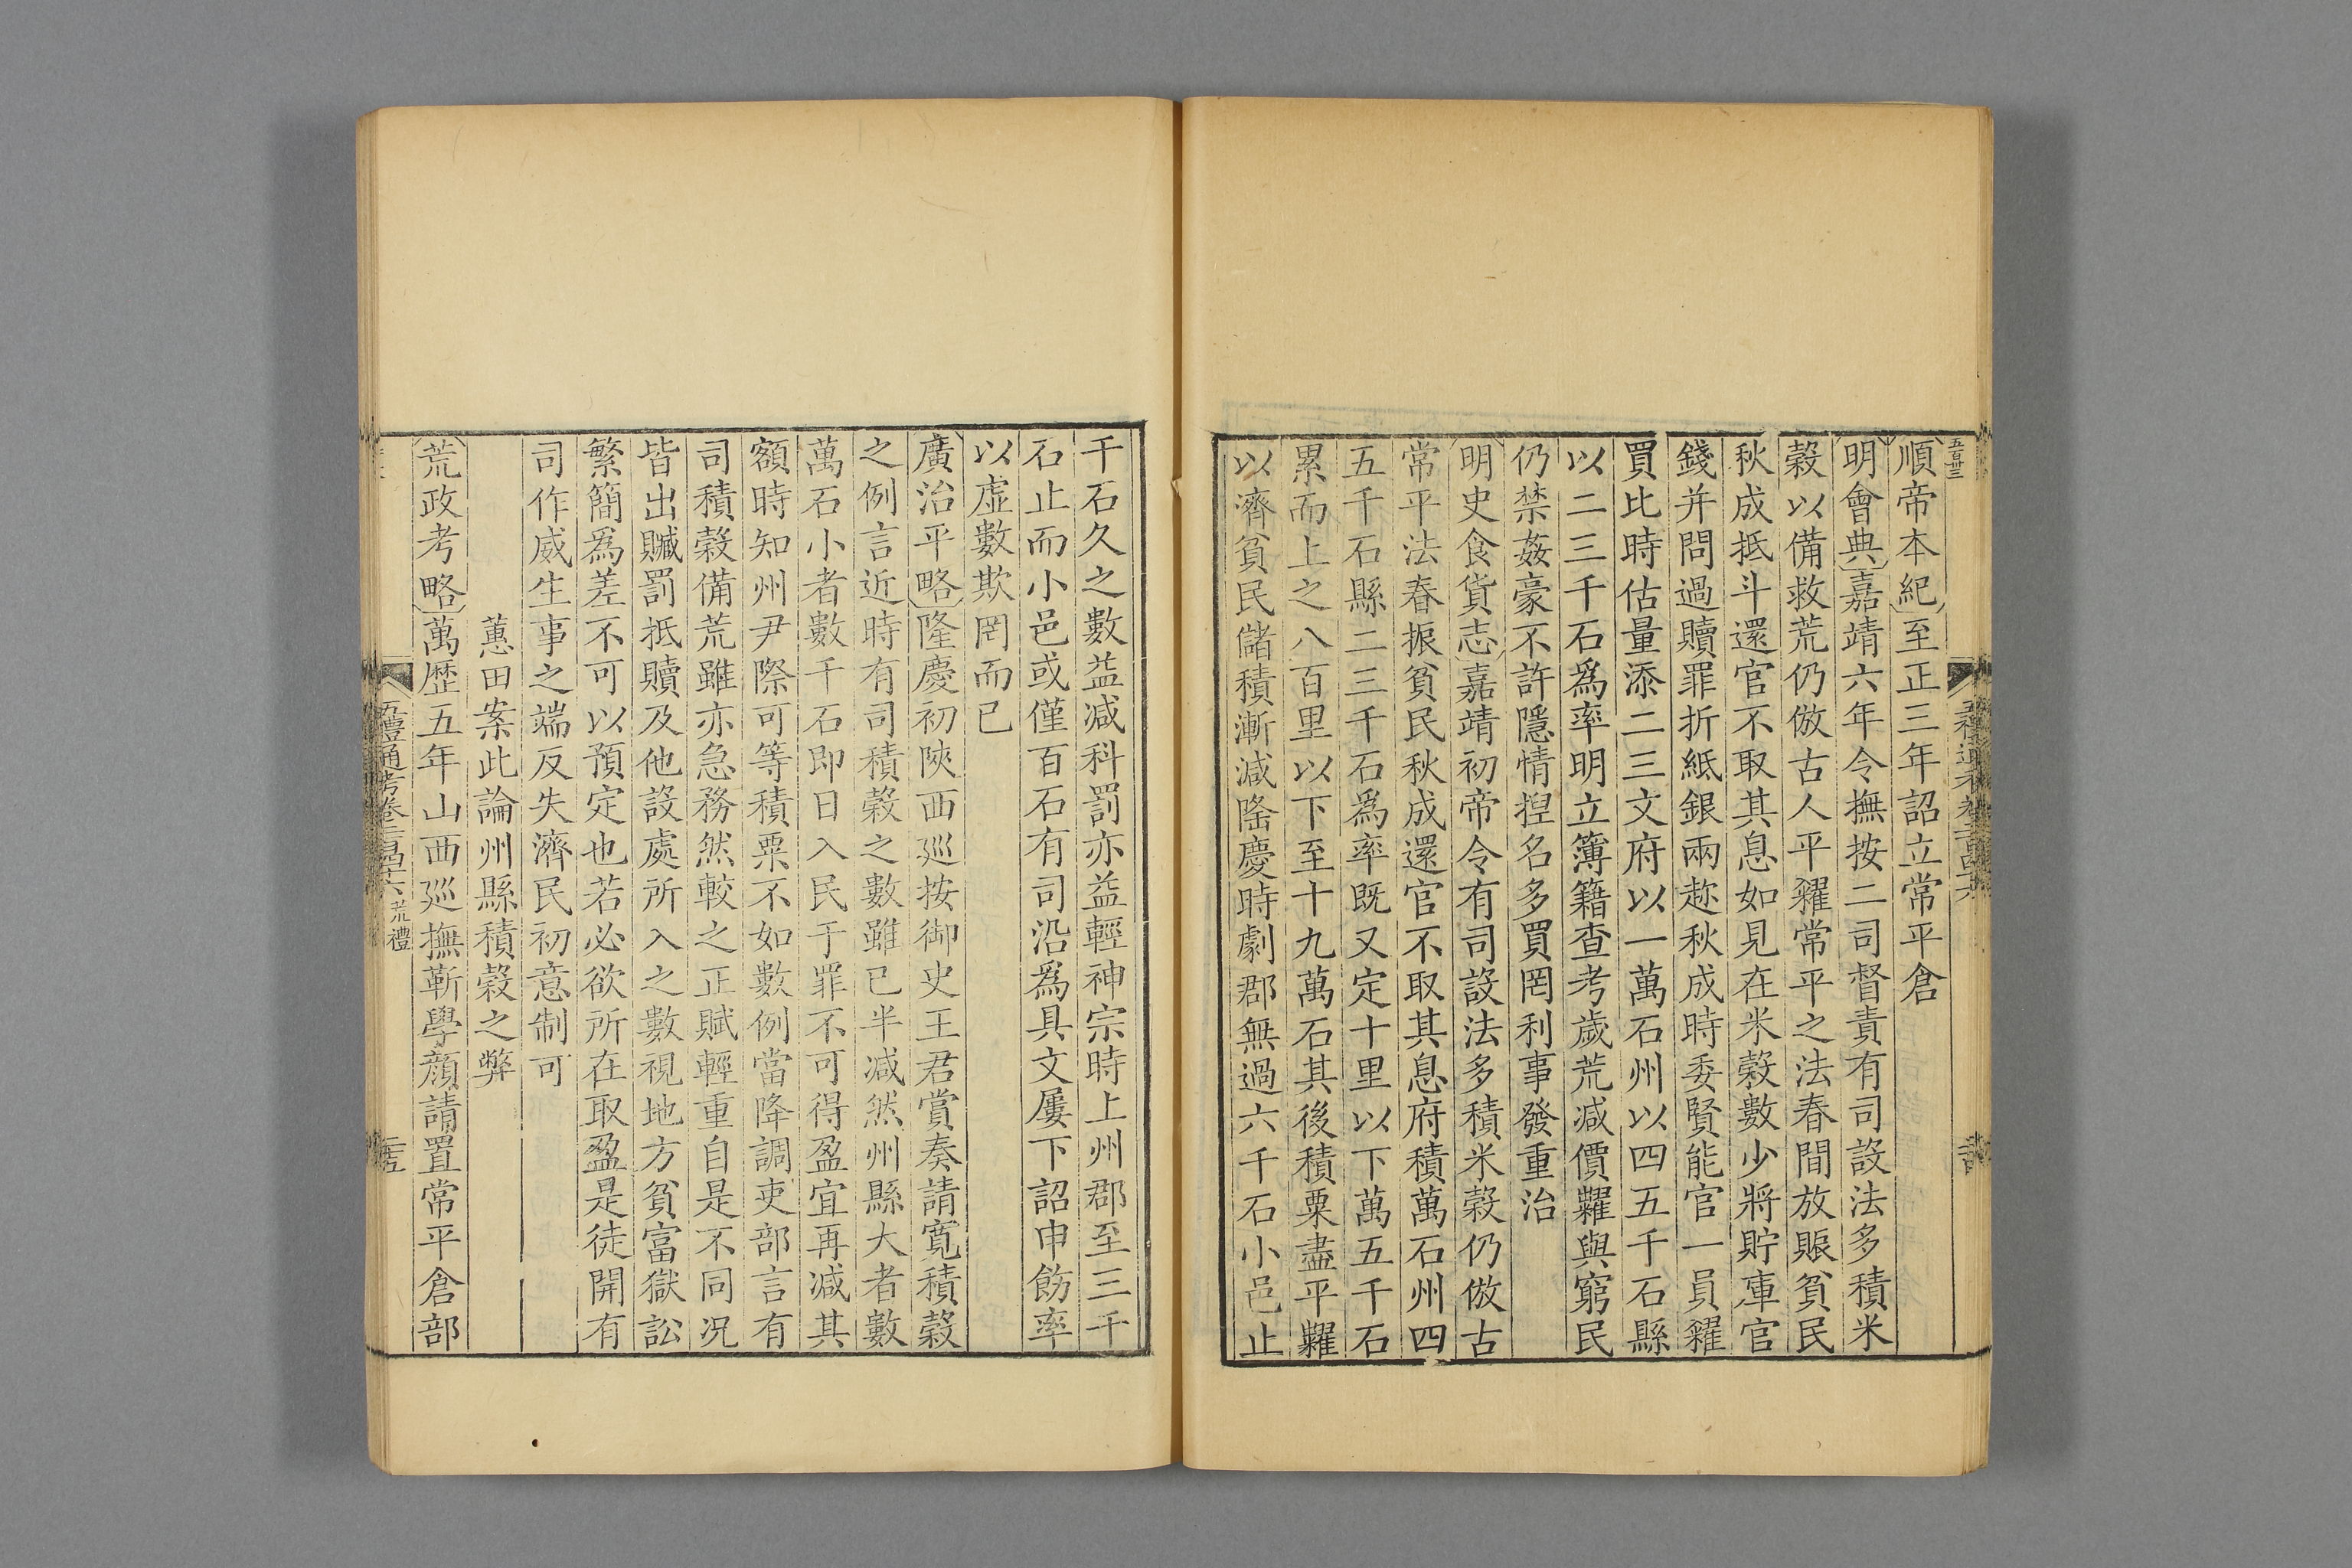 五百卅三
順帝本紀至正三年詔立常平倉
明會典嘉靖六年令撫按二司督責有司設法多積米
穀以備救荒仍倣古人平糴常平之法春間放賑貧民
秋成抵斗還官不取其息如見在米穀數少將貯庫官
錢并問過贖罪折紙銀兩趂秋成時委賢能官一員糴
買比時估量添二三文府以一萬石州以四五千石縣
以二三千石爲率明立簿籍查考歲荒減價糶與窮民
仍禁姦豪不許隱情揑名多買罔利事發重治
明史食貨志嘉靖初帝令有司設法多積米穀仍倣古
常平法春振貧民秋成還官不取其息府積萬石州四
五千石縣二三千石爲率旣又定十里以下萬五千石
累而上之八百里以下至十九萬石其後積粟盡平糶
以濟貧民儲積漸減隆慶時劇郡無過六千石小邑止
千石久之數益減科罰亦益輕神宗時上州郡至三千
石止而小邑或僅百石有司沿爲具文屢下詔申飭率
以虛數欺罔而已
廣治平略隆慶初陝西巡按御史王君賞奏請寬積穀
之例言近時有司積穀之數雖已半減然州縣大者數
萬石小者數千石即日入民于罪不可得盈宜再減其
額時知州尹際可等積粟不如數例當降調吏部言有
司積穀備荒雖亦急務然較之正賦輕重自是不同況
皆出贓罰抵贖及他設處所入之數視地方貧富獄訟
繁簡爲差不可以預定也若必欲所在取盈是徒開有
司作威生事之端反失濟民初意制可
蕙田案此論州縣積穀之弊
荒政考略萬歷五年山西巡撫靳學顔請置常平倉部
五禮通考卷二百四十六 荒禮
二十五